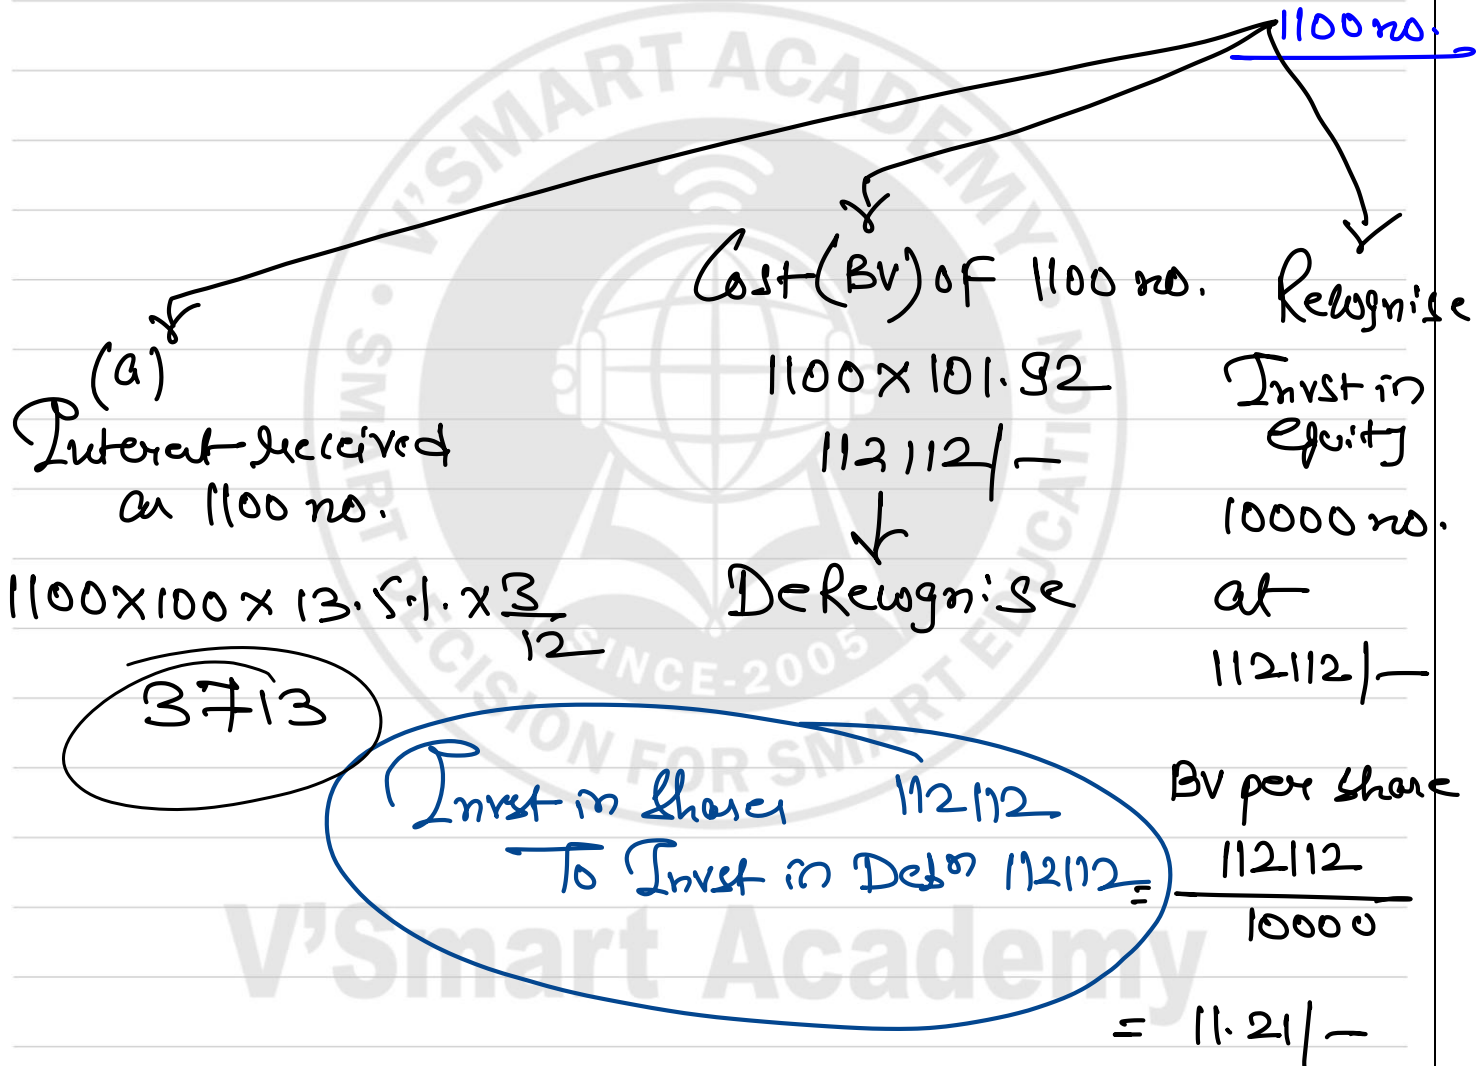 1100 no.
(a)
Interest received
on 1100 no.
1100 x 100 x 13.5%. x 3/12
3713
Cost (BV) of 1100 no.
1100 x 101.92
112112/-
DeRecognise
Recognise
Invst in
equity
10000 no.
at
112112/-
BV per share
= 112112/10000
= 11.21/-
Invst in Shares 112112
To Invst in Debn 112112
V'SMART ACADEMY
SMART DECISION FOR SMART EDUCATION
SINCE-2005
V'Smart Academy